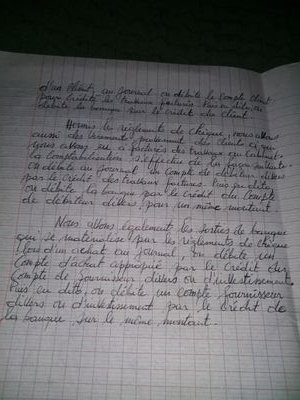 d'un client, au journal on débite le compte client
pour crédité les travaux facturés. Puis en suite on
débite la banque sur le crédit du client.
Hormis les règlements de chèque, nous avons
aussi des versements
nous avons eu a facturés des travaux au
la comptabilisation s'effectue de la façon suivante:
on débite au journal un compte de débiteur divers
par le crédit des travaux facturés. Puis en dite
on débite la banque par le crédit du compte
de débiteur divers pour un même montant
Nous avons également les sorties de banque
qui se matérialise par les règlements de chèque
lors d'un achat au journal, on débite un
compte d'achat approprié par le crédit du
compte de fournisseur divers ou d'investissement.
Puis en dite, on débite un compte fournisseur
divers ou d'investissement par le crédit de
la banque sur le même montant.